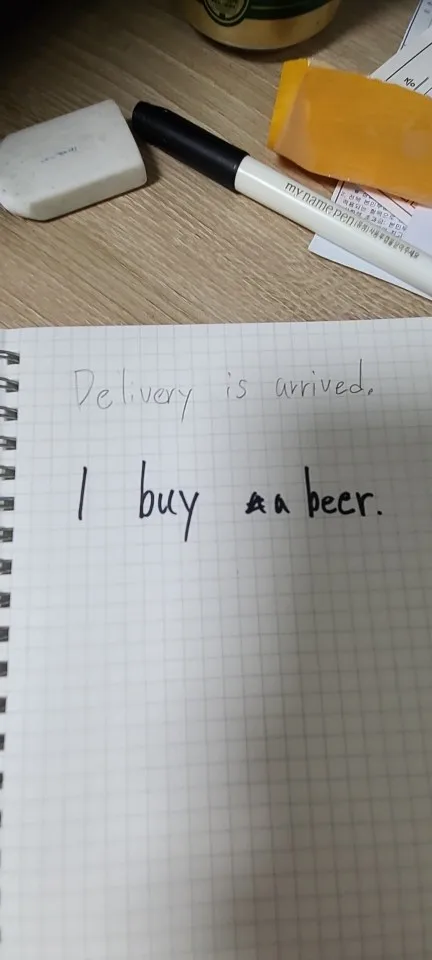 my name pen
Delivery is arrived.
I buy a beer.